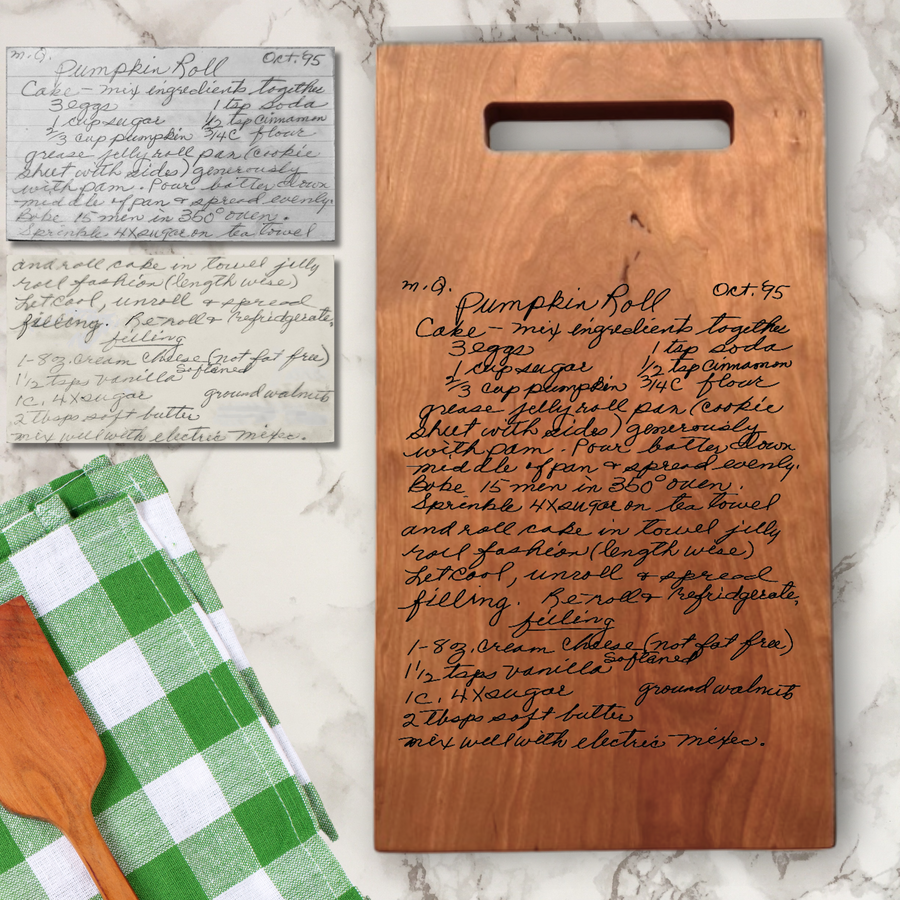 m.Q. Oct. '95
Pumpkin Roll
Cake - mix ingredients together
3 eggs 1 tsp soda
1 cup sugar 1/2 tsp cinnamon
2/3 cup pumpkin 3/4 C flour
grease jelly roll pan (cookie
sheet with sides) generously
with pam. Pour batter down
middle of pan & spread evenly.
Bake 15 min in 350° oven.
Sprinkle 4X sugar on tea towel
and roll cake in towel jelly
roll fashion (length wise)
Let cool, unroll & spread
filling. Reroll & refridgerate.
filling
1-8 oz. cream cheese (not fat free)
Softened
1 1/2 tsps vanilla
1 c. 4X sugar ground walnuts
2 tbsps soft butter
mix well with electric mixer.
m.Q. Oct. '95
Pumpkin Roll
Cake - mix ingredients together
3 eggs 1 tsp soda
1 cup sugar 1/2 tsp cinnamon
2/3 cup pumpkin 3/4 C flour
grease jelly roll pan (cookie
sheet with sides) generously
with pam. Pour batter down
middle of pan & spread evenly.
Bake 15 min in 350° oven.
Sprinkle 4X sugar on tea towel
and roll cake in towel jelly
roll fashion (length wise)
Let cool, unroll & spread
filling. Reroll & refridgerate.
filling
1-8 oz. cream cheese (not fat free)
Softened
1 1/2 tsps vanilla
1 c. 4X sugar ground walnuts
2 tbsps soft butter
mix well with electric mixer.